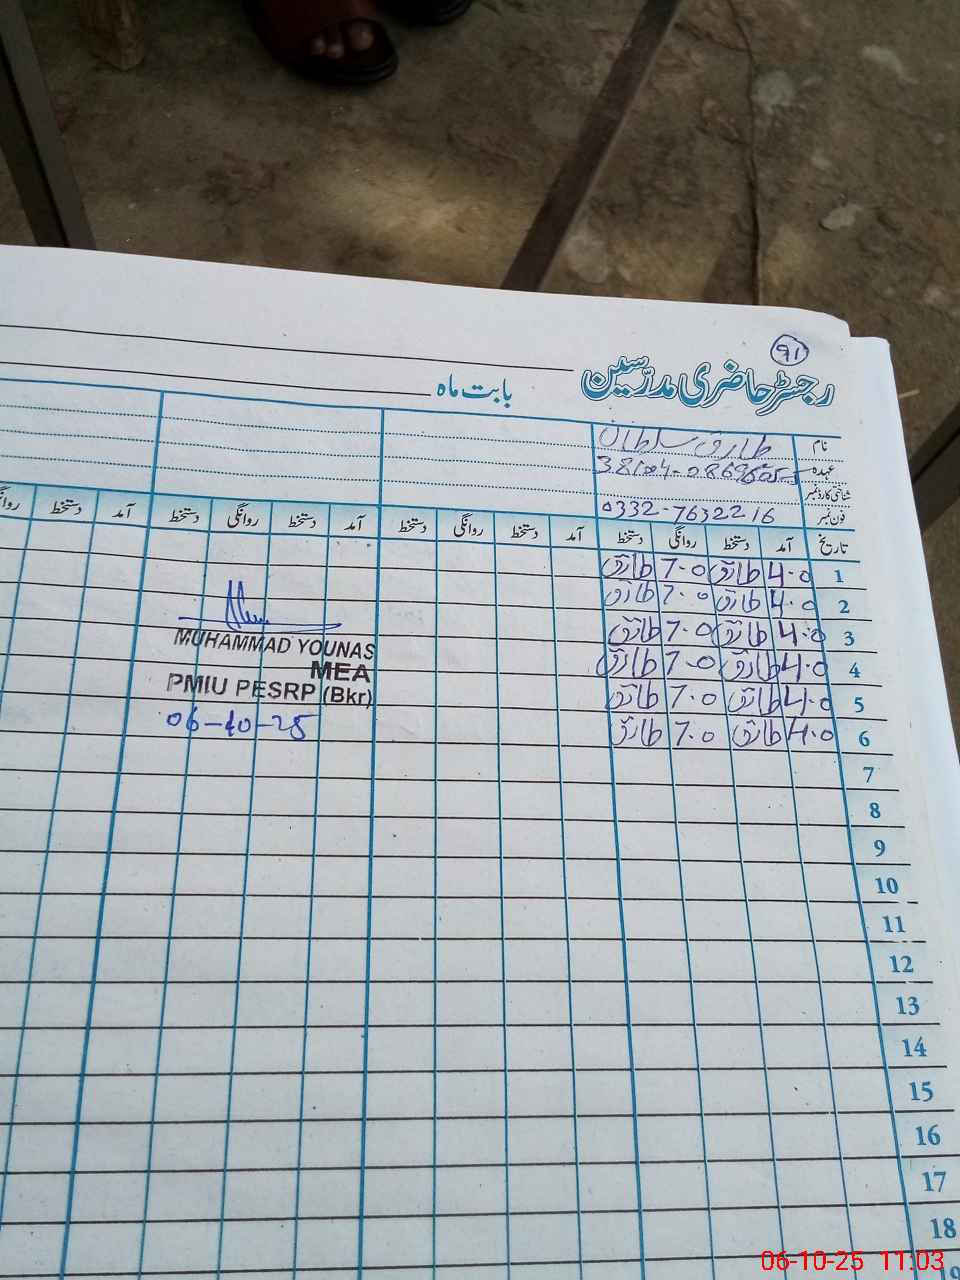 91
رجسٹر حاضری مدرّسین
بابت ماہ
نام طارق سلطان
عہدہ
شناختی کارڈ نمبر
فون نمبر 0332-7632216
تاریخ آمد دستخط روانگی دستخط آمد دستخط روانگی دستخط آمد دستخط روانگی دستخط آمد دستخط
1 4.0 طارق 7.0 طارق
2 4.0 طارق 7.0 طارق
3 4.0 طارق 7.0 طارق
4 4.0 طارق 7.0 طارق
5 4.0 طارق 7.0 طارق
6 4.0 طارق 7.0 طارق
MUHAMMAD YOUNAS
MEA
PMIU PESRP (Bkr)
06-10-25
7
8
9
10
11
12
13
14
15
16
17
18
19
06-10-25 11:03